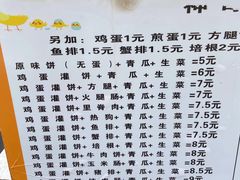 另加：鸡蛋1元 煎蛋1元 方腿
鱼排1.5元 蟹排1.5元 培根2元
原味饼（无蛋）+青瓜+生菜=5元
鸡蛋灌饼+青瓜+生菜=6元
鸡蛋灌饼+方腿+青瓜+生菜=7元
鸡蛋灌饼+火腿肠+青瓜+生菜=7.5元
鸡蛋灌饼+里脊肉+青瓜+生菜=7.5元
鸡蛋灌饼+热狗+青瓜+生菜=7.5元
鸡蛋灌饼+鱼排+青瓜+生菜=7.5元
鸡蛋灌饼+蟹排+青瓜+生菜=7.5元
鸡蛋灌饼+培根+青瓜+生菜=8元
鸡蛋灌饼+牛肉饼+青瓜+生菜=8元
鸡蛋灌饼+玉米肠+青瓜+生菜=8元
鸡蛋灌饼+猪排+青瓜+生菜=8.5元